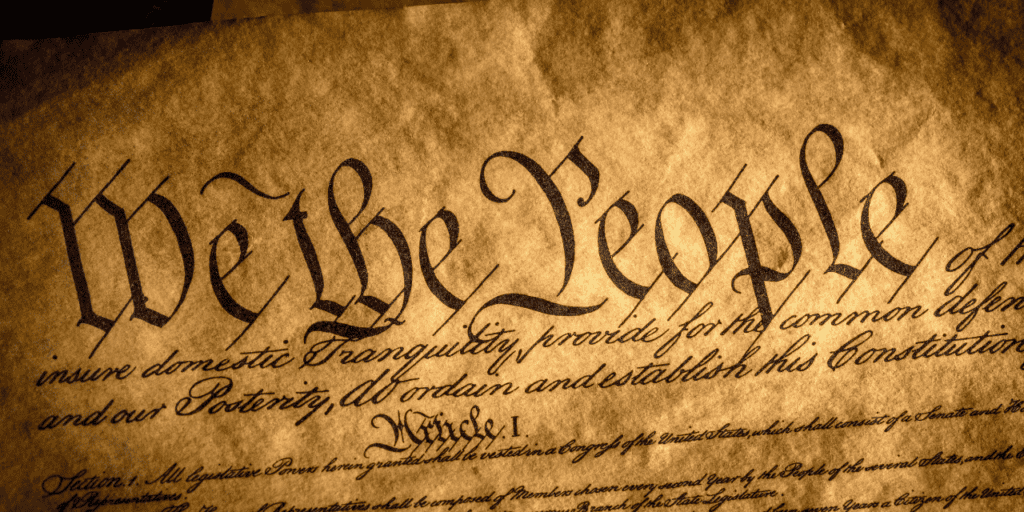 We the People of
insure domestic Tranquility, provide for the common defen
and our Posterity, do ordain and establish this Constitution
Article. I
Section. 1. All legislative Powers herein granted shall be vested in a Congress of the United States, which shall consist of a Senate and
of Representatives.
Representatives shall be composed of Members chosen every second Year by the People of the several States, and the
Branch of the State Legislature.
Years a Citizen of the United